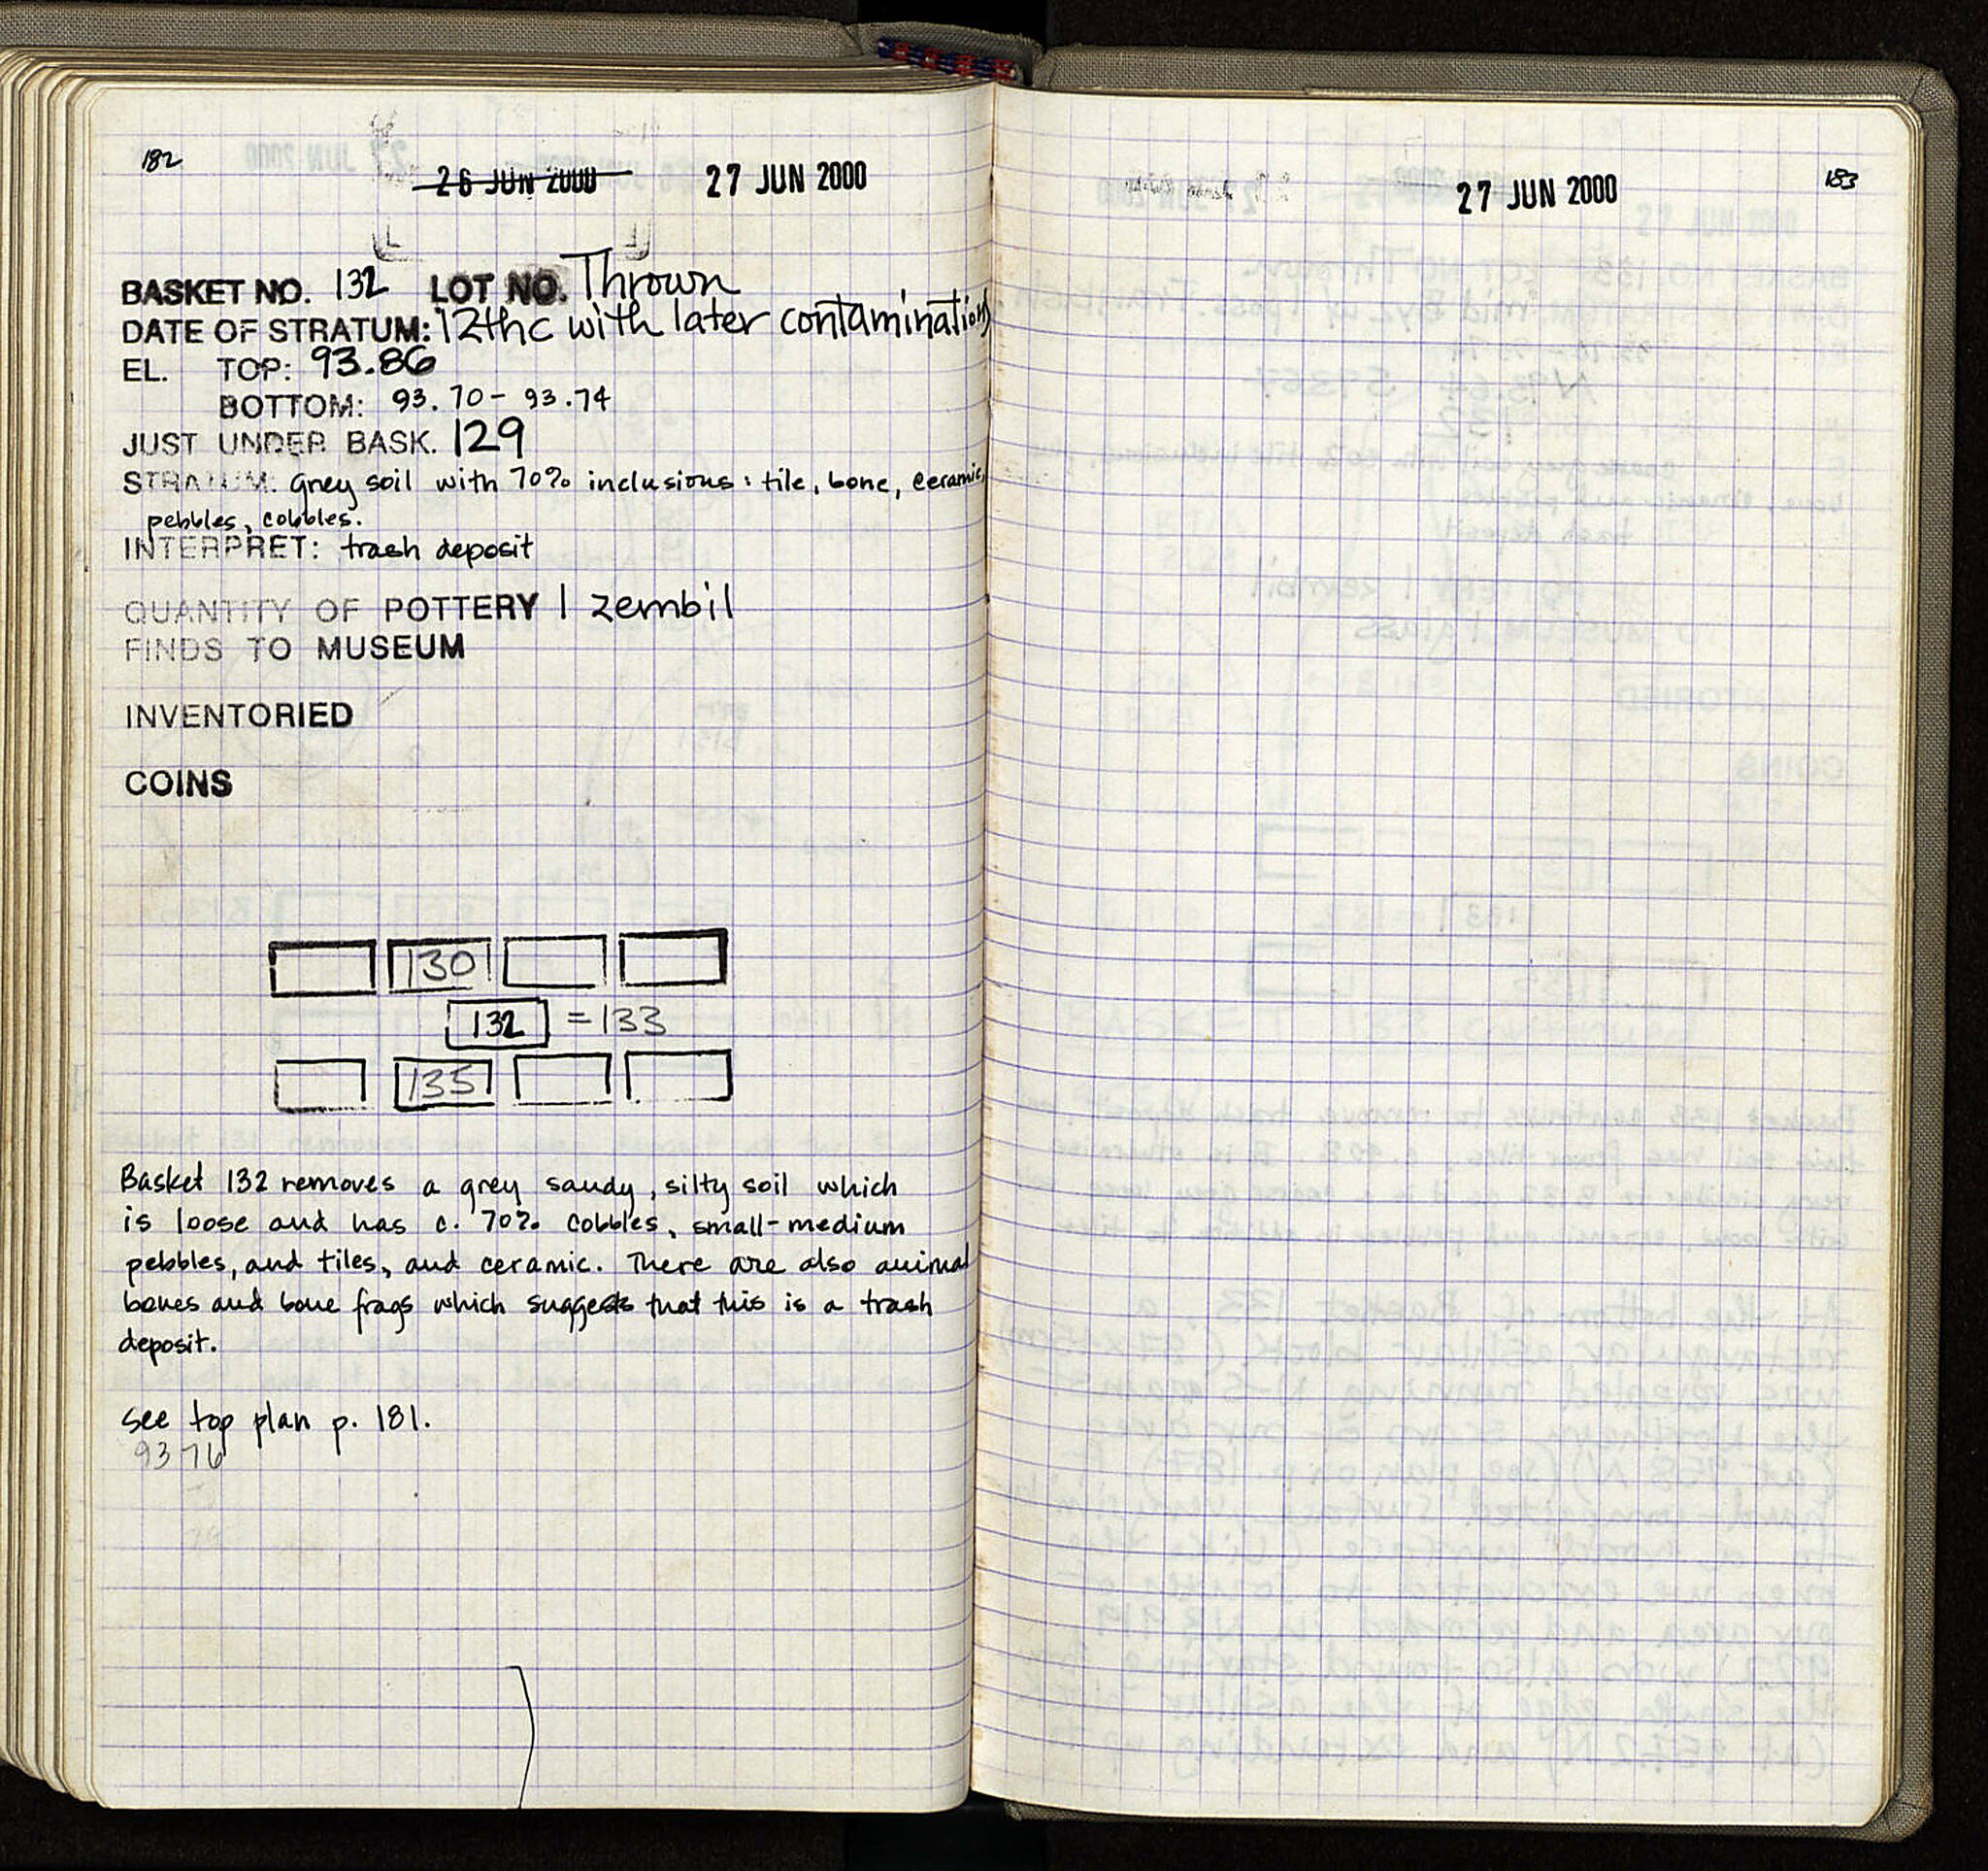 182
26 JUN 2000 27 JUN 2000
BASKET NO. 132 LOT NO. Thrown
DATE OF STRATUM: 12thc with later contamination
EL. TOP: 93.86
BOTTOM: 93.70 - 93.74
JUST UNDER BASK. 129
STRATUM: grey soil with 70% inclusions: tile, bone, ceramic,
pebbles, cobbles.
INTERPRET: trash deposit
QUANTITY OF POTTERY 1 zembil
FINDS TO MUSEUM
INVENTORIED
COINS
130
132 = 133
135
Basket 132 removes a grey sandy, silty soil which
is loose and has c. 70% cobbles, small-medium
pebbles, and tiles, and ceramic. There are also animal
bones and bone frags which suggests that this is a trash
deposit.
see top plan p. 181.
93 76
27 JUN 2000
183